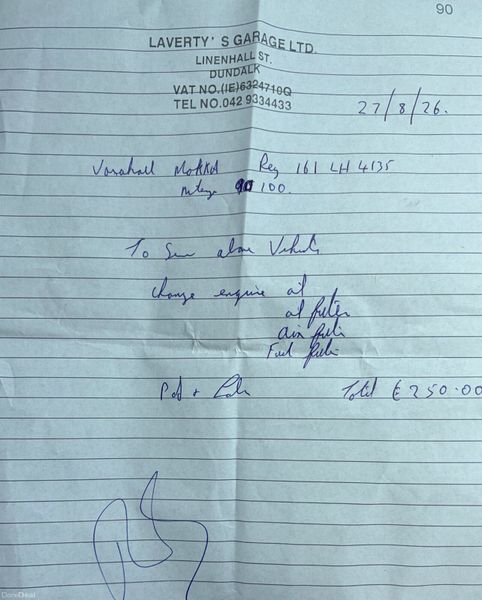 90
LAVERTY'S GARAGE LTD.
LINENHALL ST.
DUNDALK
VAT NO.(IE)6324710Q
TEL NO.042 9334433
27/8/26.
Vauxhall Mokka Reg 161 LH 4135
100.
To above Vehicle
change engine oil
oil filter
air filter
Fuel filter
Total €250.00
DoneDeal